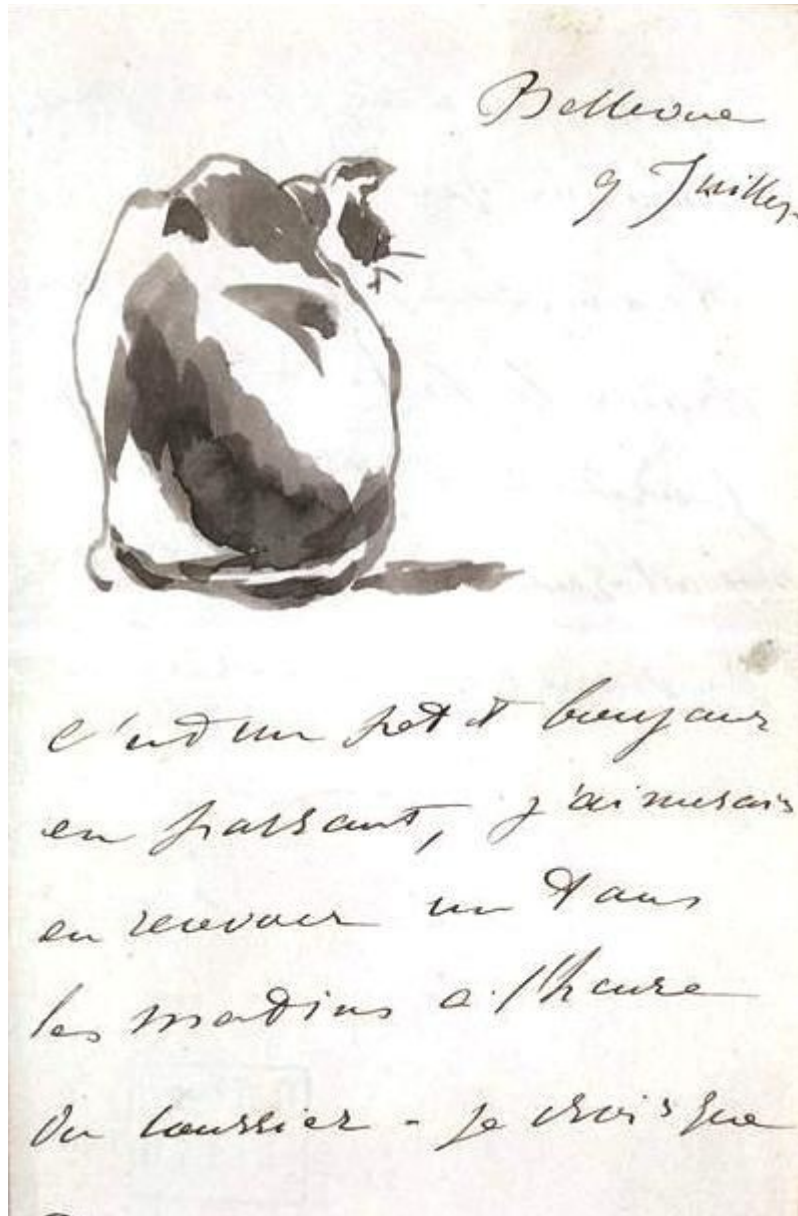 Bellevue
9 Juillet
c'est un petit bonjour
en passant, j'aimerais
en recevoir un tous
les matins à l'heure
du courrier - je crois que